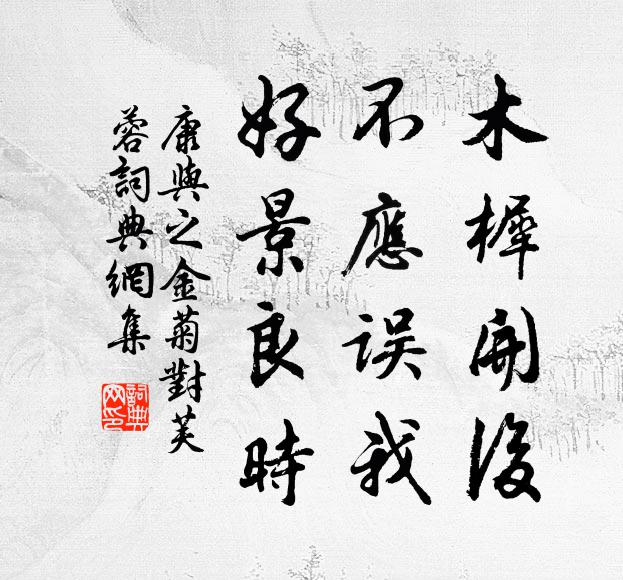 木樨開後
不應誤我
好景良時
康與之金菊對芙
蓉詞典網集
詞典網印